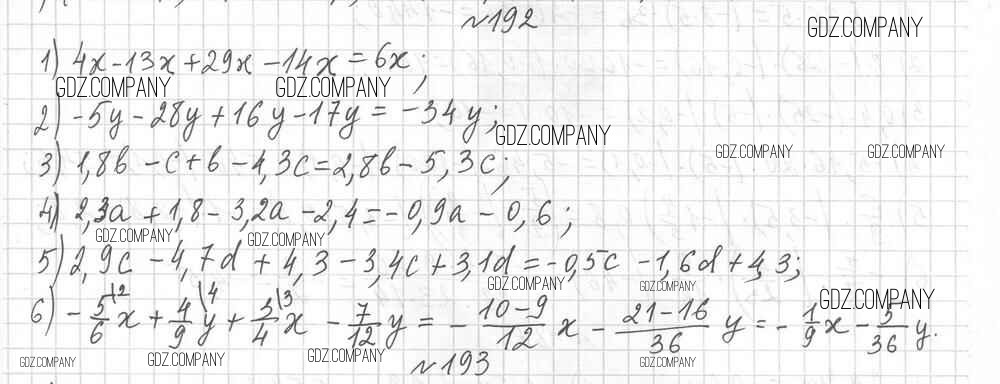 №192
GDZ.COMPANY
1) 4x-13x+29x-14x=6x;
GDZ.COMPANY GDZ.COMPANY
2) -5y-28y+16y-17y=-34y;
GDZ.COMPANY
3) 1,8b-c+b-4,3c=2,8b-5,3c;
GDZ.COMPANY GDZ.COMPANY
4) 2,3a+1,8-3,2a-2,4=-0,9a-0,6;
GDZ.COMPANY GDZ.COMPANY
5) 2,9c-4,7d+4,3-3,4c+3,1d=-0,5c-1,6d+4,3;
GDZ.COMPANY GDZ.COMPANY
6) -5/6\2 x+4/9\4 y+3/4\3 x-7/12 y=-(10-9)/12 x-(21-16)/36 y=-1/9 x-5/36 y.
GDZ.COMPANY
GDZ.COMPANY GDZ.COMPANY GDZ.COMPANY GDZ.COMPANY
№193